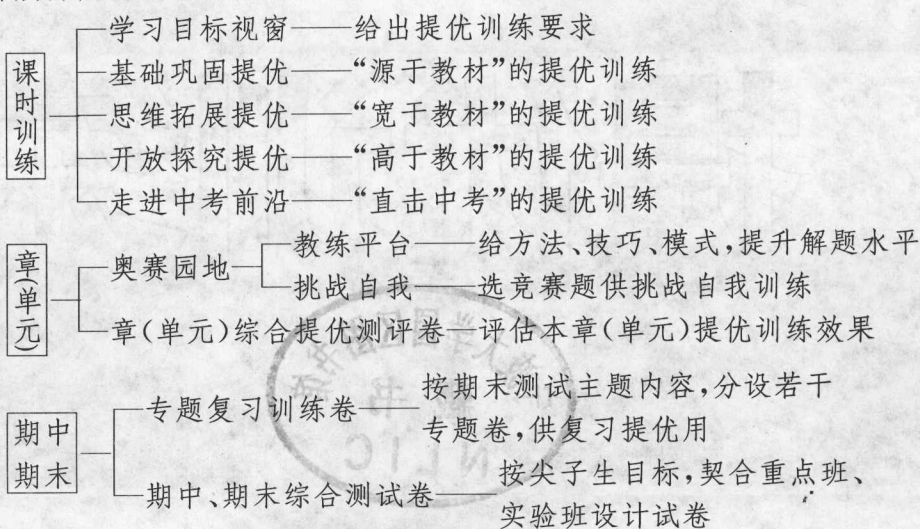 课时训练
学习目标视窗——给出提优训练要求
基础巩固提优——“源于教材”的提优训练
思维拓展提优——“宽于教材”的提优训练
开放探究提优——“高于教材”的提优训练
走进中考前沿——“直击中考”的提优训练
章(单元)
奥赛园地
教练平台——给方法、技巧、模式,提升解题水平
挑战自我——选竞赛题供挑战自我训练
章(单元)综合提优测评卷—评估本章(单元)提优训练效果
期中
期末
专题复习训练卷——按期末测试主题内容,分设若干
专题卷,供复习提优用
期中、期末综合测试卷——按尖子生目标,契合重点班、
实验班设计试卷
NLIC